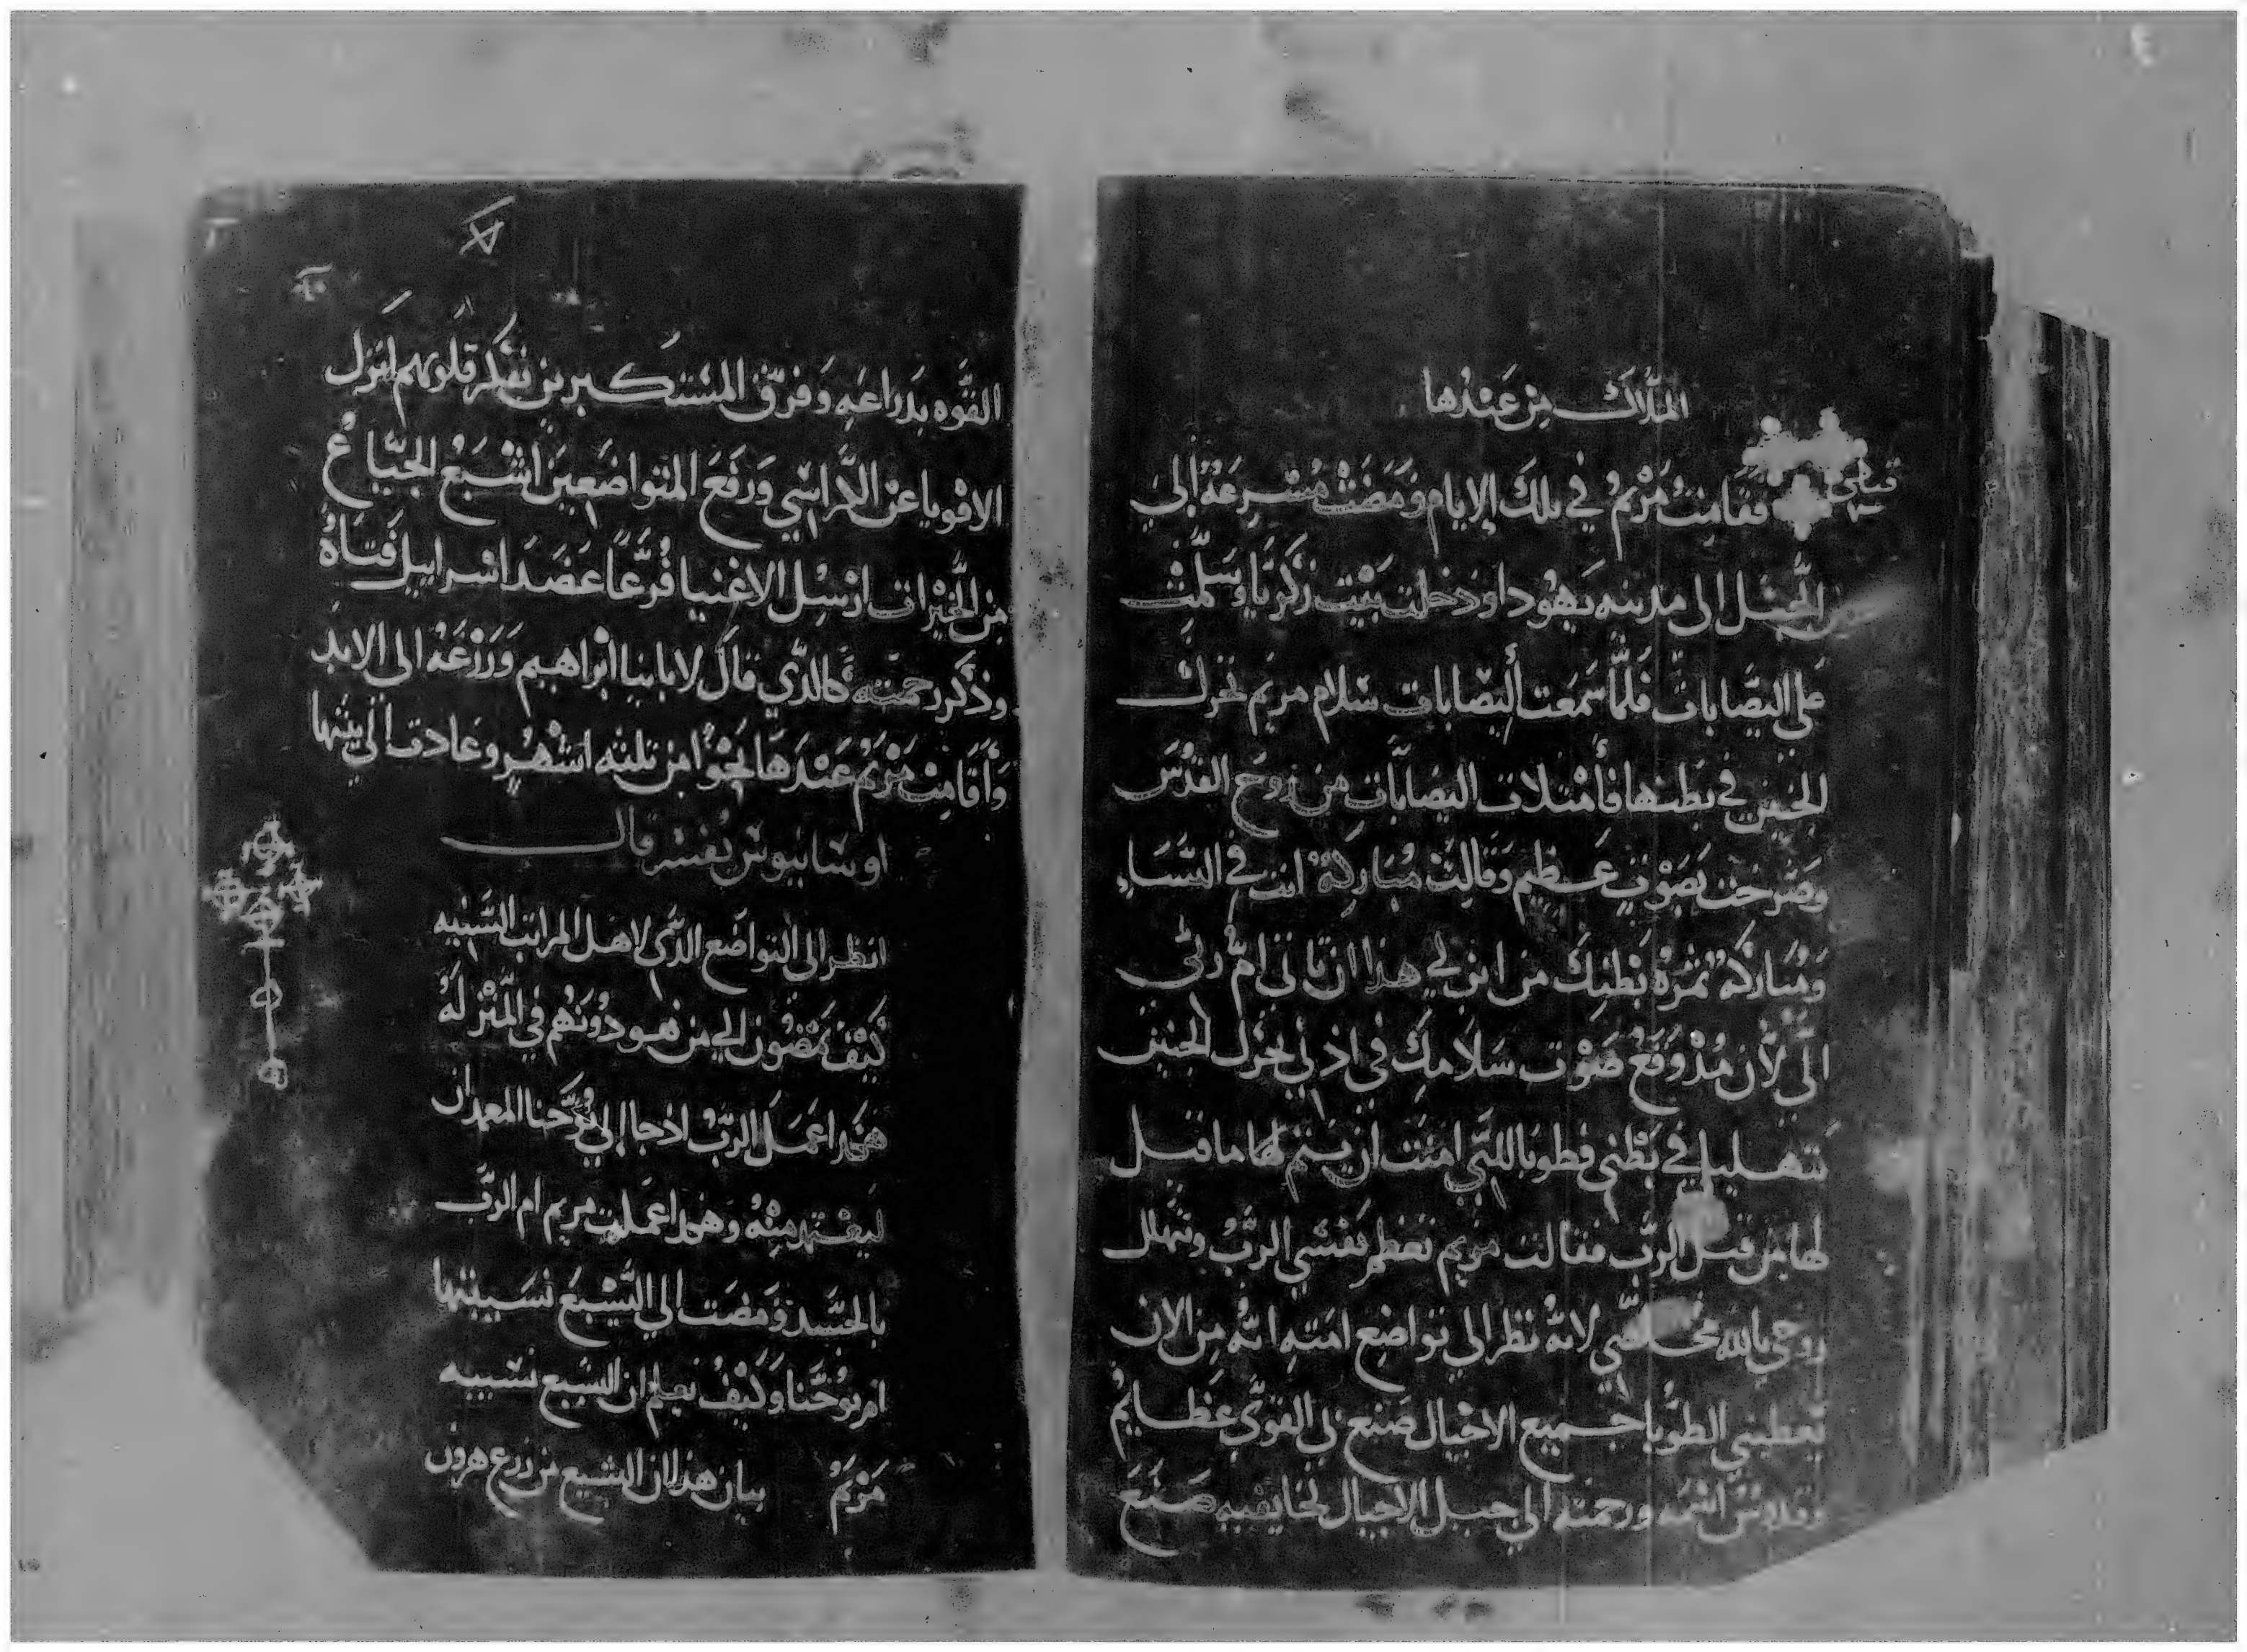 الملاك من عندها
فقامت مريم في تلك الايام ومضت مسرعة إلى
الجبل الى مدينه يهودا ودخلت بيت زكريا وسلمت
على اليصابات فلما سمعت أليصابات سلام مريم تحرك
الجنين في بطنها فأمتلات اليصابات من روح القدس
وصرخت بصوت عظيم وقالت مباركة انت في النساء
ومباركه ثمرة بطنك من اين لي هذا ان تاتى ام ربى
الى لان مذ وقع صوت سلامك في اذني تحرك الجنين
بتهليل في بطني فطوبا للتي امنت ان يتم لها ما قيل
لها من قبل الرب فقالت مريم تعظم نفسي الرب وتهلل
روحي بالله مخلصي لانه نظر الي تواضع امته انه من الان
تعطيني الطوبا جميع الاجيال صنع بي القوي عظايم
وقدوس اسمه ورحمته الي جيل الاجيال لخايفيه صنع
القوه بدراعه وفرق المستكبرين بفكر قلوبهم انزل
الاقويا عن الكراسي ورفع المتواضعين اشبع الجياع
من الخيرات ارسل الاغنيا فرغا عضد اسراييل فتاه
وذكر رحمته كالذي قال لاباينا ابراهيم وزرعه الى الابد
وأقامت مريم عندها نحوا من ثلثه اشهر وعادت الي بيتها
اوسابيوس يفسر قال
انظر الى التواضع الذي لاهل المراتب السنيه
كيف يمضون الي من هو دونهم في المنزله
هكذا عمل الرب اذ جا الي يوحنا المعمدان
ليعتمد منه وهكذا عملت مريم ام الرب
بالجسد ومضت الي اليشبع نسيبتها
ام يوحنا وكيف نعلم ان اليشبع نسيبه
مريم بيان هذا ان اليشبع من زرع هرون